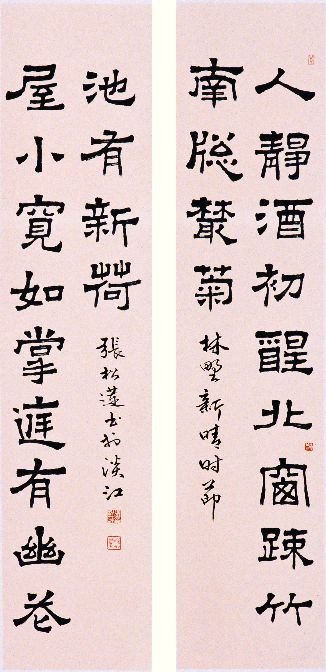 人靜酒初醒北窗疎竹
南牕叢菊
林野新晴时節
屋小寬如掌庭有幽花
池有新荷
張松蓮书於淡江